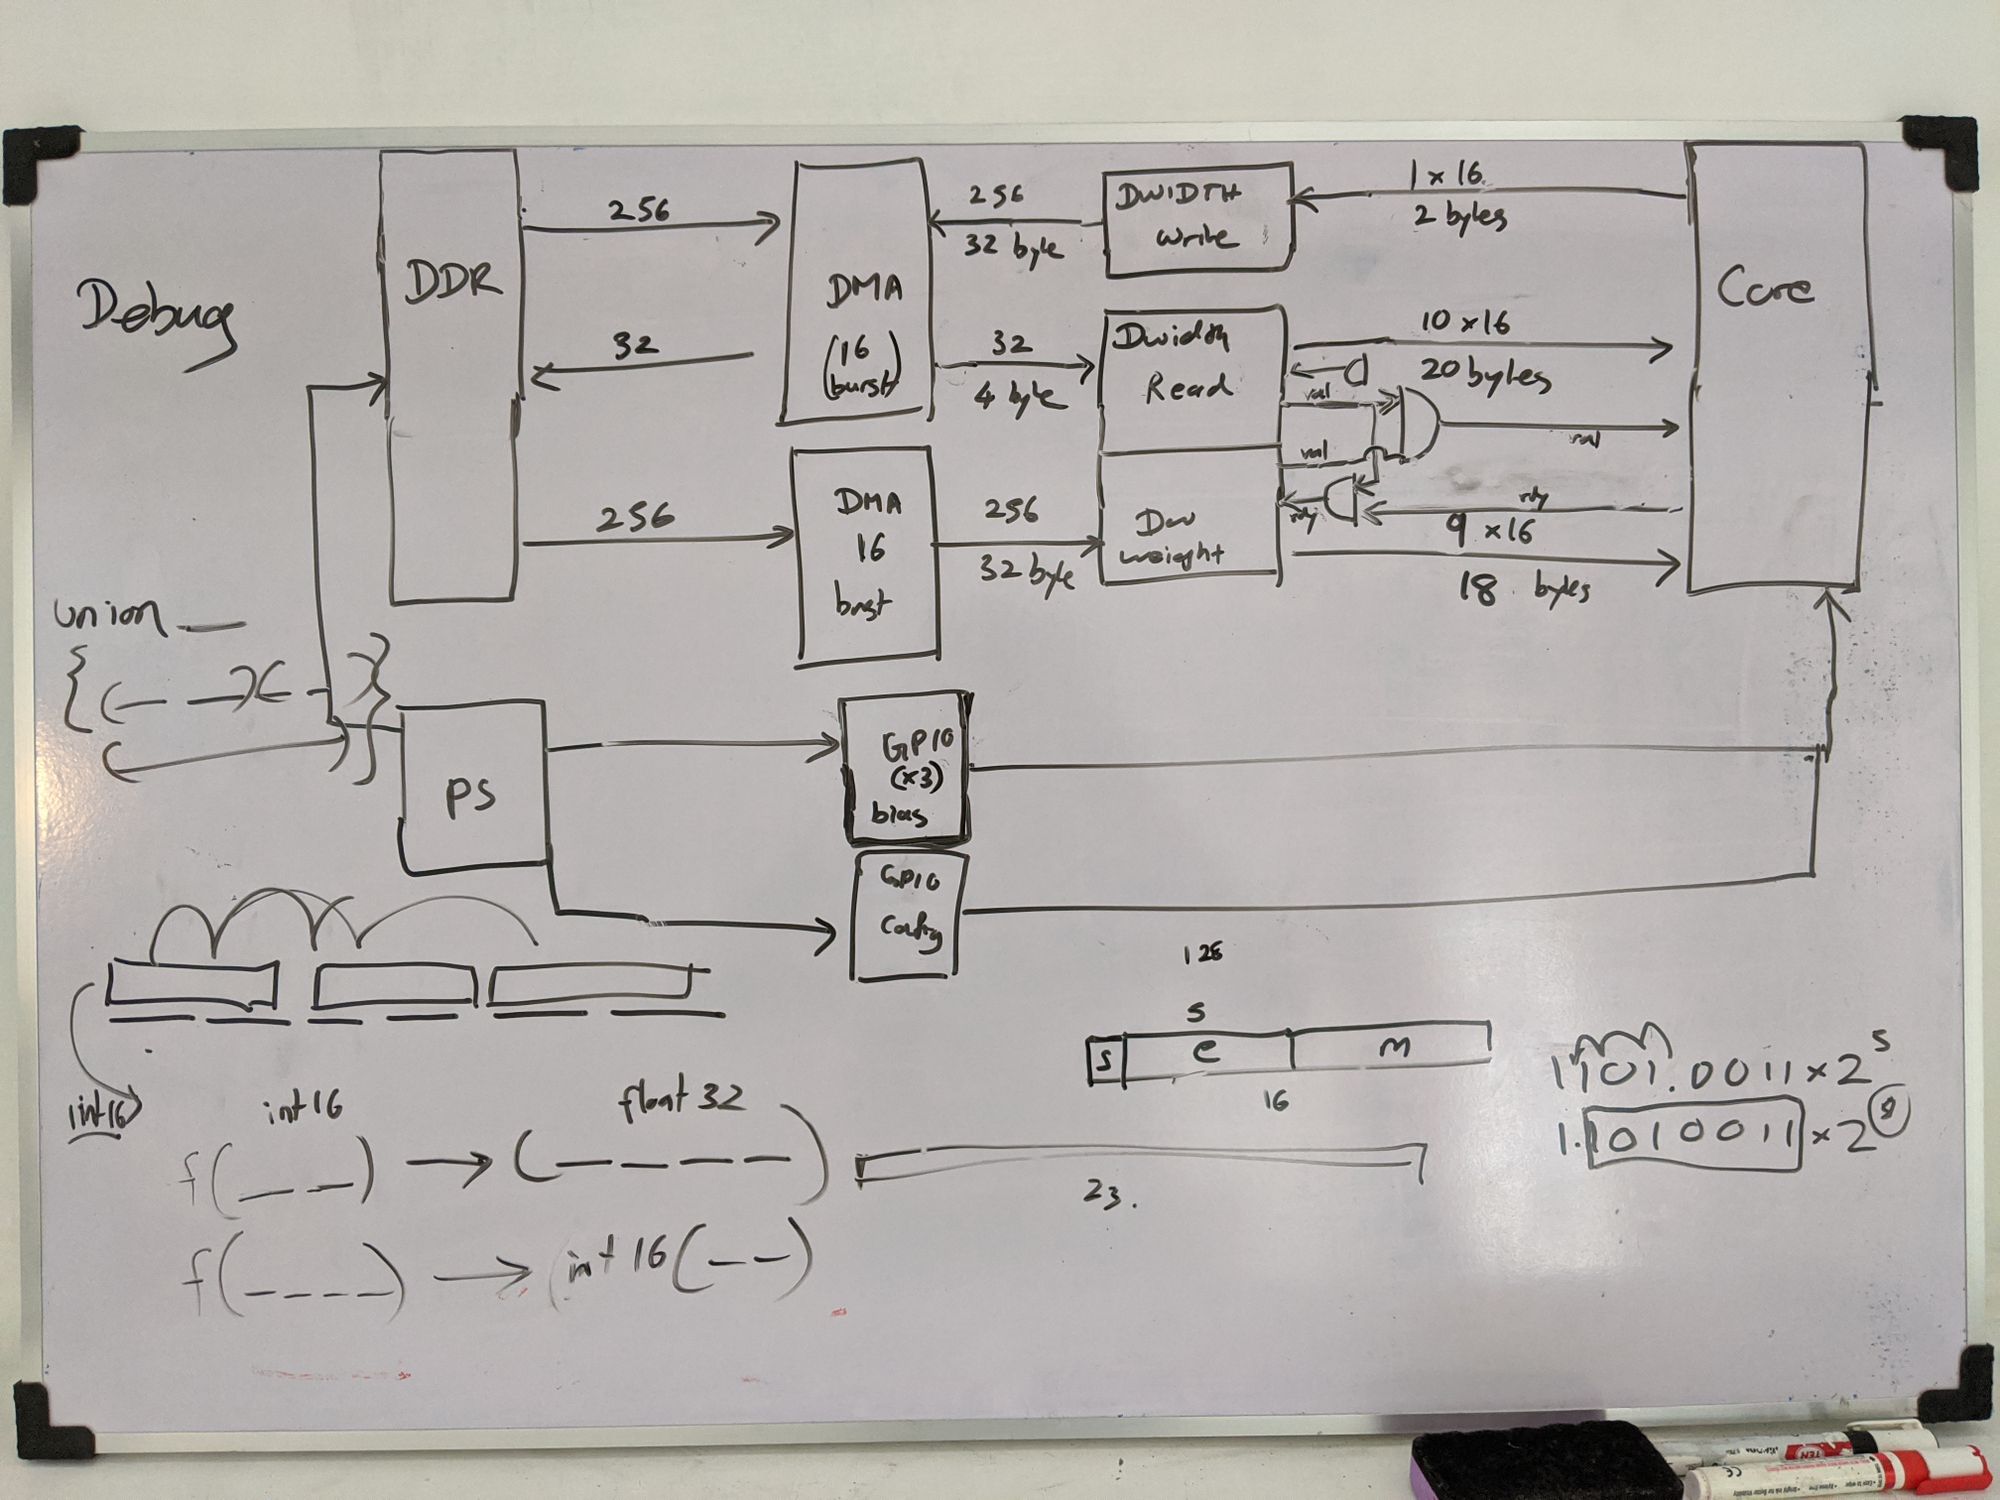 Debug
DDR
256
32
256
DMA
(16
burst)
256
32 byte
32
4 byte
DWIDTH
write
1 x 16
2 bytes
Core
Dwidth
Read
10 x 16
20 bytes
val
val
val
rdy
rdy
9 x 16
18 bytes
DMA
16
burst
256
32 byte
Dw
weight
union __
{ (_ _)(_ _) }
PS
GPIO
(x3)
bias
GPIO
Config
128
5
s e m
16
1101.0011 x 2^5
1.1010011 x 2^8
int16
int16
float32
f(_ _) → (_ _ _ _)
23.
f(_ _ _ _) → int16(_ _)